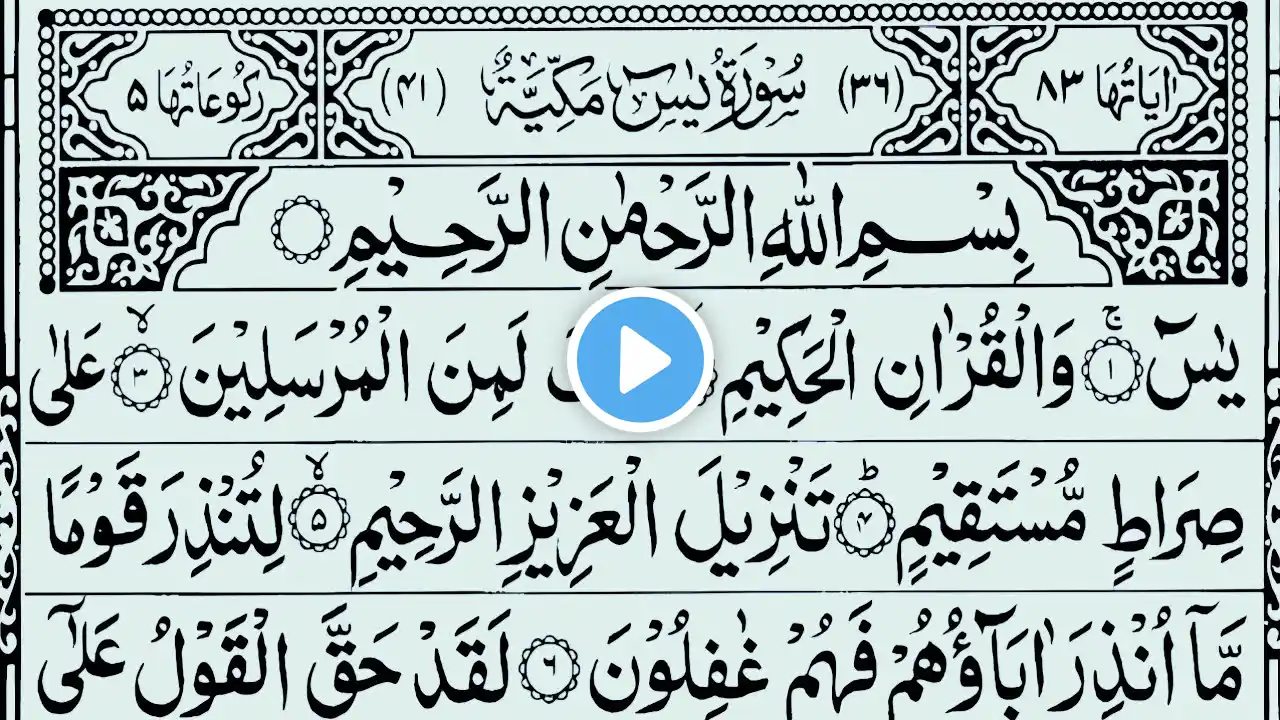 اٰيَاتُهَا ٨٣ (٣٦) سُوْرَةُ يٰسٓ مَكِّيَّةٌ (٤١) رُكُوْعَاتُهَا ٥
بِسْمِ اللّٰهِ الرَّحْمٰنِ الرَّحِيْمِ
يٰسٓ ۚ ١ وَالْقُرْاٰنِ الْحَكِيْمِ لَمِنَ الْمُرْسَلِيْنَ ۙ ٣ عَلٰى
صِرَاطٍ مُّسْتَقِيْمٍ ؕ ۴ تَنْزِيْلَ الْعَزِيْزِ الرَّحِيْمِ ۙ ۵ لِتُنْذِرَ قَوْمًا
مَّآ اُنْذِرَ اٰبَآؤُهُمْ فَهُمْ غٰفِلُوْنَ ۶ لَقَدْ حَقَّ الْقَوْلُ عَلٰٓى